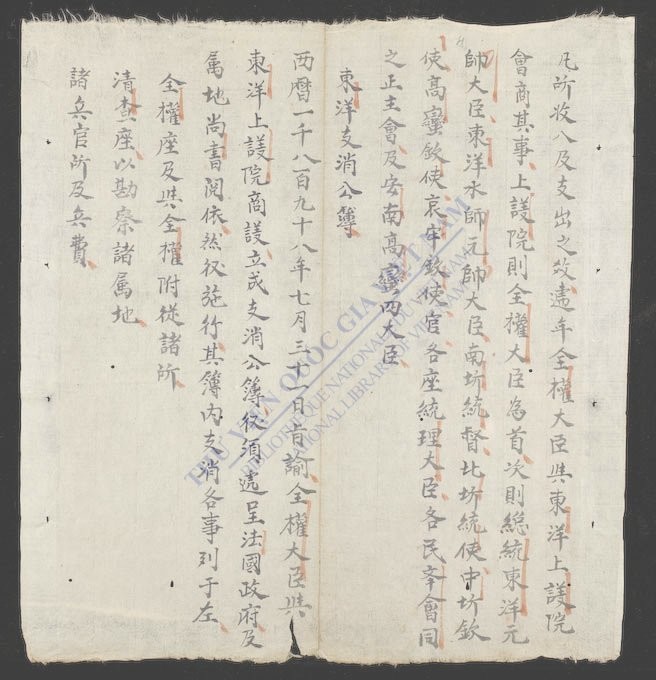 凡所收入及支出之故遞年全權大臣與東洋上議院
會商其事上議院則全權大臣為首次則總統東洋元
帥大臣東洋水師元帥大臣南圻統督北圻統使中圻欽
使高蠻欽使哀牢欽使官各座統理大臣各民亭會同
之正主會及安南高蠻四大臣
東洋支消公簿
西曆一千八百九十八年七月三十一日旨諭全權大臣與
東洋上議院商設立成支消公簿仍須遞呈法國政府及
属地尚書閱依然後施行其簿內支消各事列于左
全權座及與全權附從諸所
清查座以勘察諸属地
諸兵官所及兵費
THƯ VIỆN QUỐC GIA VIỆT NAM
BIBLIOTHEQUE NATIONALE DU VIETNAM
NATIONAL LIBRARY OF VIETNAM